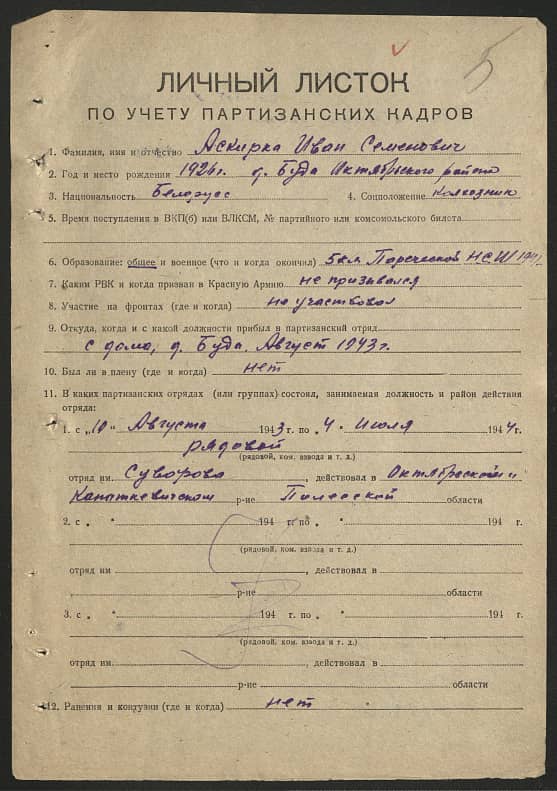 5
ЛИЧНЫЙ ЛИСТОК
ПО УЧЕТУ ПАРТИЗАНСКИХ КАДРОВ
1. Фамилия, имя и отчество Аскирка Иван Семенович
2. Год и место рождения 1926 г. д. Буда Октябрьского района
3. Национальность Белорус 4. Соцположение Колхозник
5. Время поступления в ВКП(б) или ВЛКСМ, № партийного или комсомольского билета
6. Образование: общее и военное (что и когда окончил) 5 кл. Пареческой НСШ 1941
7. Каким РВК и когда призван в Красную Армию не призывался
8. Участие на фронтах (где и когда) не участвовал
9. Откуда, когда и с какой должности прибыл в партизанский отряд
с дома, д. Буда. Август 1943 г.
10. Был ли в плену (где и когда) нет
11. В каких партизанских отрядах (или группах) состоял, занимаемая должность и район действия
отряда:
1. с „10“ Августа 1943 г. по „4“ Июля 1944 г.
рядовой
(рядовой, ком. взвода и т. д.)
отряд им. Суворова, действовал в Октябрьском и
Капаткевичском р-не Полесской области
2. с „ “ 194 г. по „ “ 194 г.
(рядовой, ком. взвода и т. д.)
отряд им , действовал в
р-не области
3. с „ “ 194 г. по „ “ 194 г.
(рядовой, ком. взвода и т. д.)
отряд им , действовал в
р-не области
12. Ранения и контузии (где и когда) нет